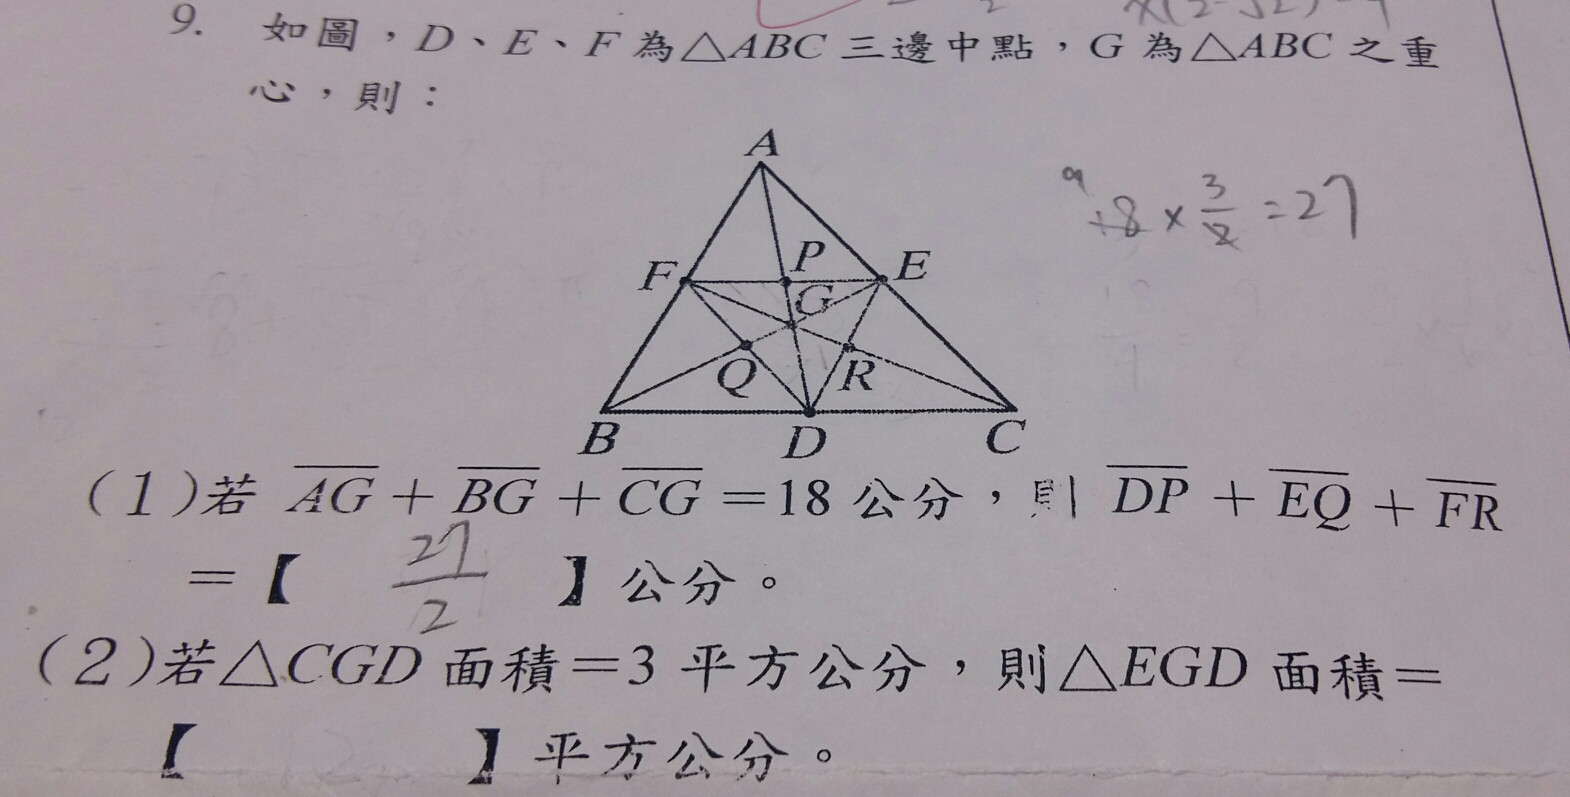 9. 如圖，D、E、F 為△ABC 三邊中點，G 為△ABC 之重
心，則：
A
18 × 3/2 = 27
F P E
G
Q R
B D C
(1)若 \overline{AG} + \overline{BG} + \overline{CG} =18 公分，則 \overline{DP} + \overline{EQ} + \overline{FR}
=【 27/2 】公分。
(2)若△CGD 面積=3 平方公分，則△EGD 面積=
【 】平方公分。